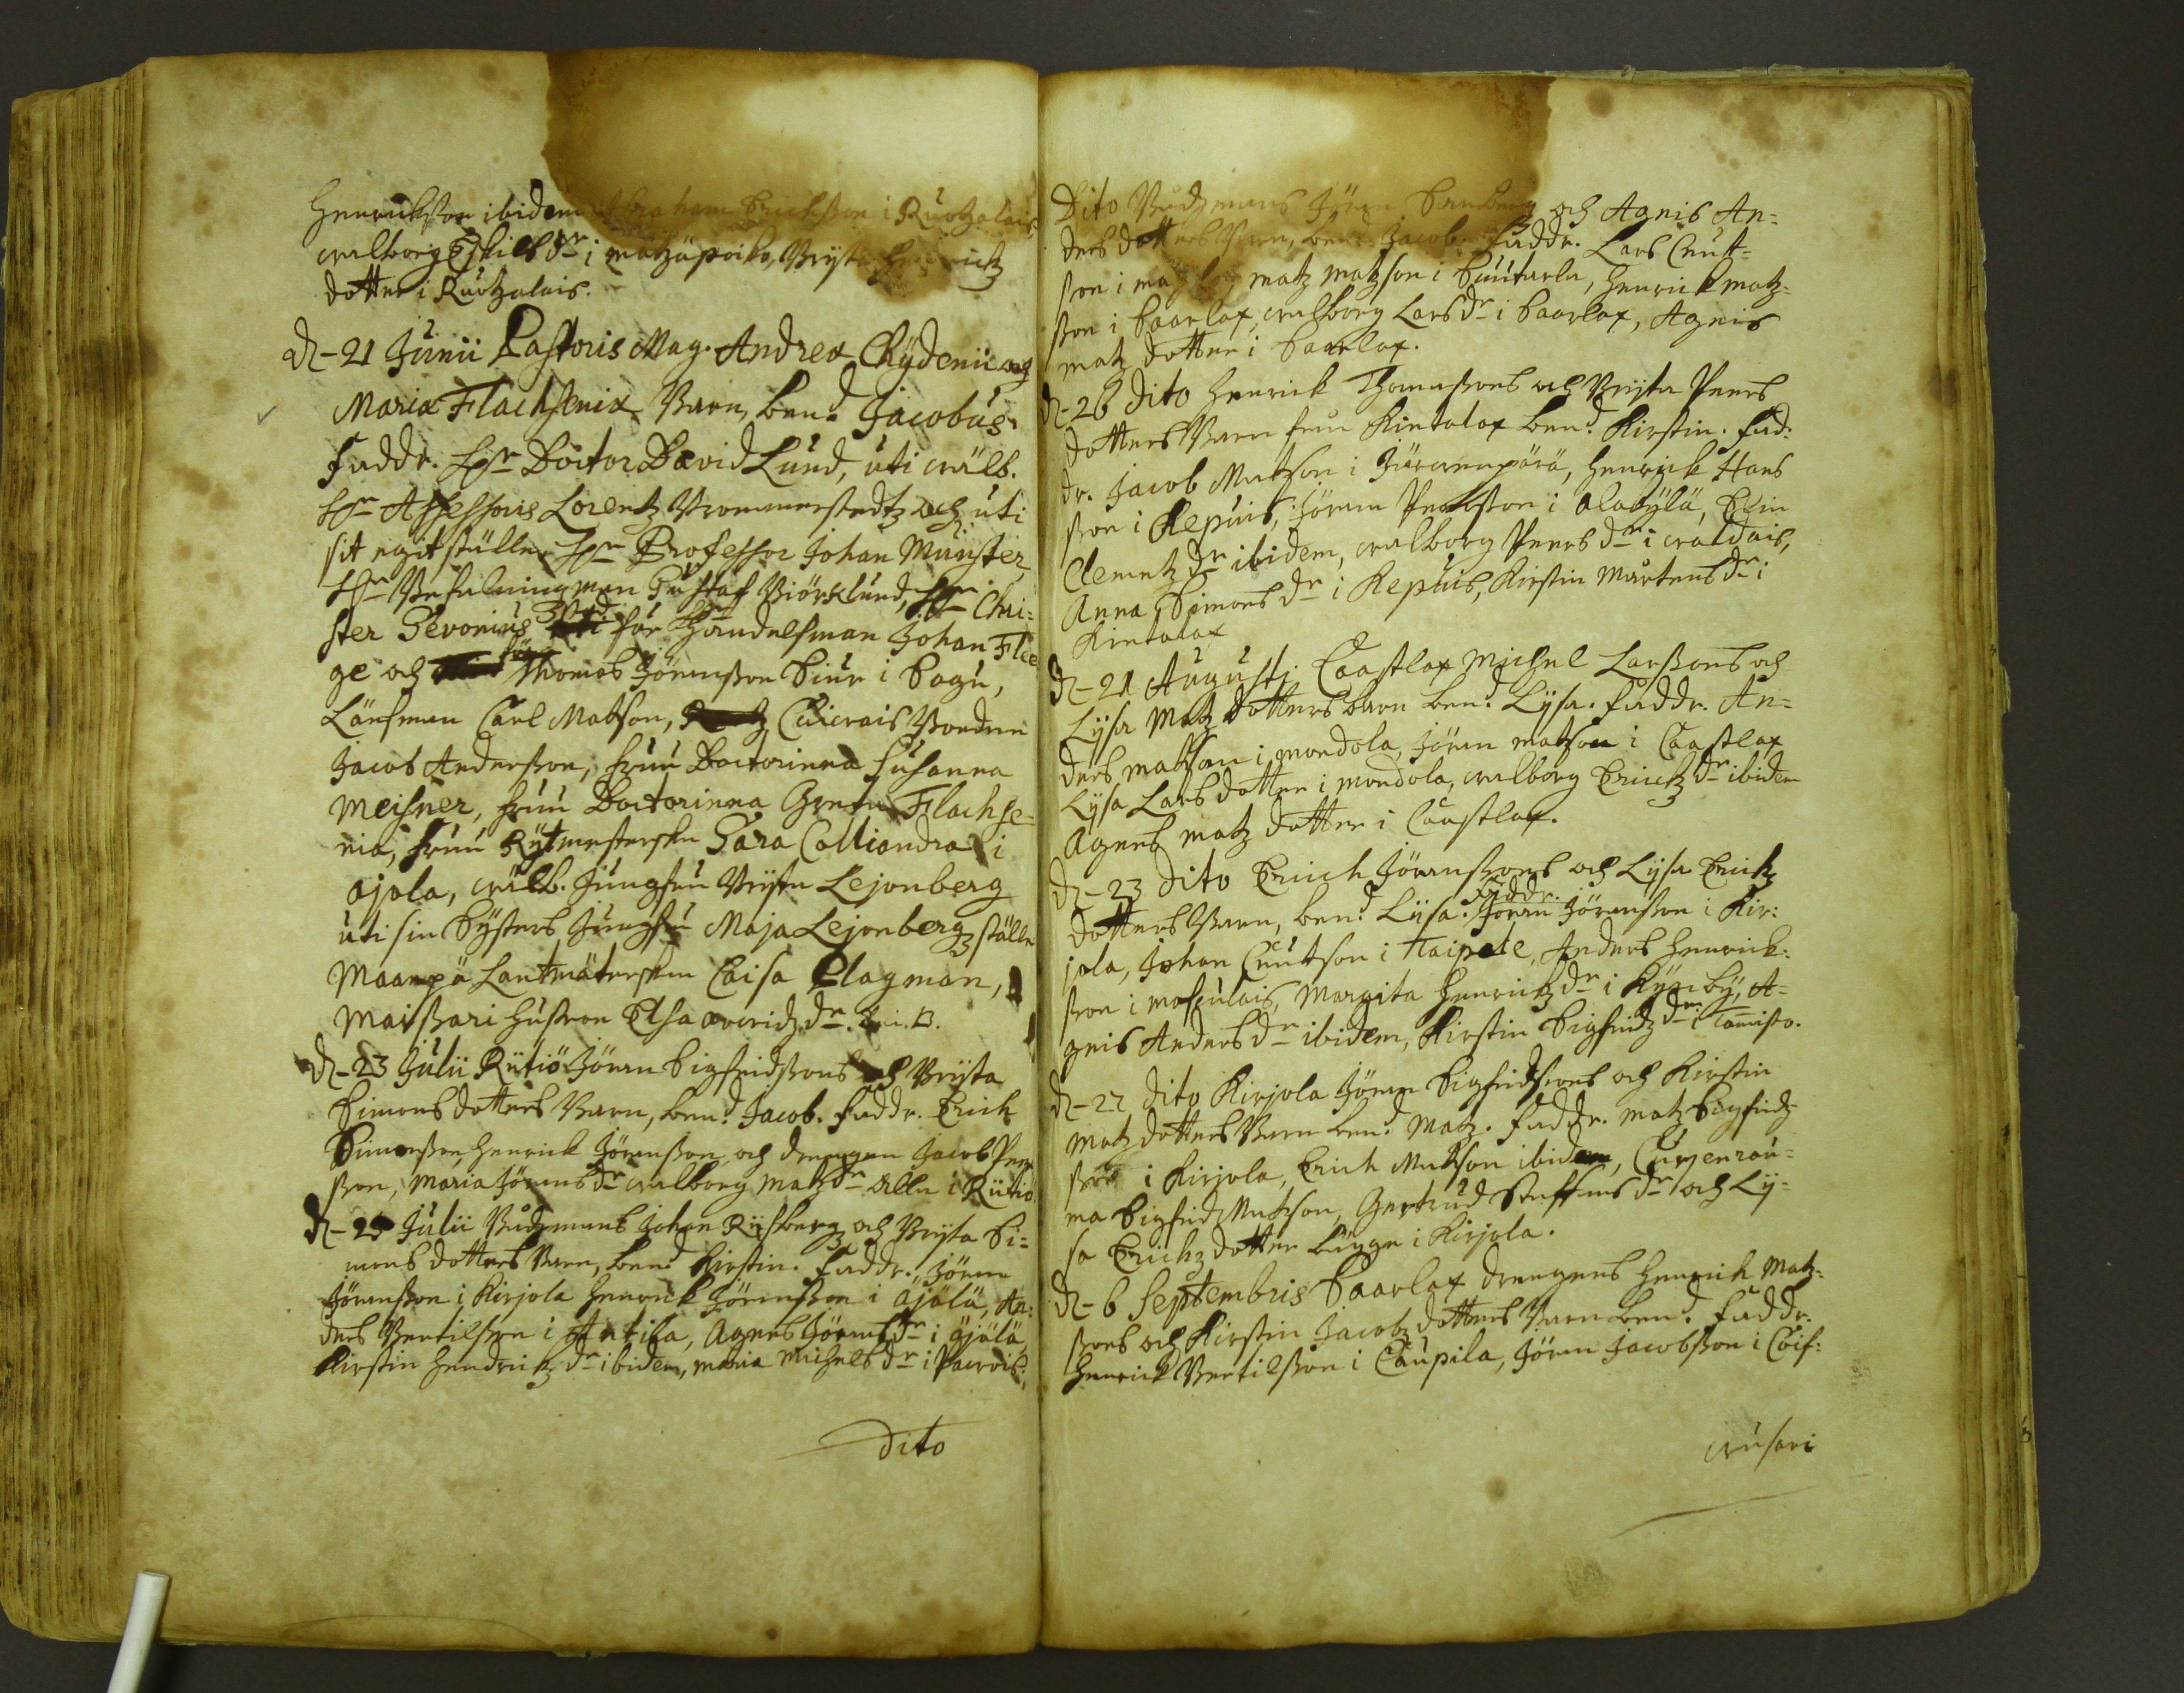 Henrickson ibidem Abraham Erichsson i Ruotzalais
walborg Eskils dr i matzäpoiko, Bryta Henricks
dotter i Ruotzalais.
d-21 Junii Pastoris Mag. Andreæ Chydenii och
Mariæ Flachsenix Barn, ben.d Jacobus
faddr. Hr Doctor David Lund, uti wälb.
Hr Assessoris Lorentz Brommerstedtz och uti
sit egit ställe. Hr Professor Johan Munster
Hr Befalningzman Gustaf Biörklund, Hr Chri-
ster Gevonius, för Handelsman Johan Flee
ge och Thomas Jöransson Siur i Sagu,
Länsman Carl Matsson, Cuiwais Bonden
Jacob Andersson, fruu Doctorinna Susanna
Meisner, fruu Doctorinna Greta Flachse-
nia, fruu Rytmesterskn Sara Calliandra i
Ojala, wälb. Jungfru Bryta Lejonberg
uti sin Systers Jungfru Maja Lejonbergz ställe
Maanpä Lantmäterskan Caisa Plagman,
Maisaari Hustron Elsa owridz dr.
d-23 Julii Rütiö Jöran Sigfridssons och Bryta
Simons dotters Barn, ben.d Jacob. faddr. Erich
Simonsson, Henrick Jöransson och drengen Jacob Peer
sson, Maria Jörans dr walborg Matz dr Alla i Rütiö
d-25 Julii Bådzmans Johan Rysberg och Bryta Si-
mons dotters Barn, ben.d Kirstin. faddr. Jöran
Jöransson i Kirjola Henrick Jöransson i Äjälä, An-
ders Bertilsson i Antila, Agnes Jörans dr i Äjälä
Kirstin Hendricks dr ibidem, Maria Michels dr i Pawois.
Dito
Dito Bådzmans Jöran Sanberg och Agnis An-
ders dotters Barn, ben.d Jacob. faddr. Lars Cnut-
sson i matz matzson i Suutarla, Henrick matz-
sson i Saarlax, walborg Lars dr i Saarlax, Agnis
matz dotter i Saarlax.
d-26 Dito Henrick Thomassons och Bryta Peers
dotters Barn frun Kintolax ben.d Kirstin. fad-
dr. Jacob Matsson i Järwenpärä, Henrick Hans
sson i Repuis, Jöran Peersson i Alakylä, Elin
Clemetz dr ibidem, walborg Peers dr i waldais,
Anna Simons dr i Repuis, Kirstin Mårtens dr i
Kintolax
d-21 Augusti Caastlax Michel Larssons och
Lysa Matz dotters barn ben.d Lysa. faddr. An-
ders Matsson i mondola, Jöran matsson i Caastlax
Lysa Lars dotter i mondola, walborg Erichz dr ibidem
Agnes matz dotter i Caastlax.
d-23 dito Erich Jöranssons och Lysa Erichz
dotters Barn, ben.d Lysa. faddr. Jöran Jöransson i Kir-
jola, Johan Cnutson i Taipale, Anders Henrick-
sson i Moskulais, Margita Henrichz dr i Kyrcby, A-
gnis Anders dr ibidem, Kirstin Sigfridz dr i Tamisto.
d-27 dito Kirjola Jöran Sigfridssons och Kirstin
Matz dotters Barn ben.d Matz. faddr. Matz Sigfridz-
sson i Kirjola, Erich Matsson ibidem, Curjenrau-
ma Sigfrid Matsson, Gertrud Staffans dr och Ly-
sa Erichz dotter Bägge i Kirjola.
d-6 Septembris Saarlax drengens Henrich Matz-
ssons och Kirstin Jacobz dotters Barn ben.d faddr.
Henrick Bertilsson i Caupila, Jöran Jacobsson i Coif-
wusari